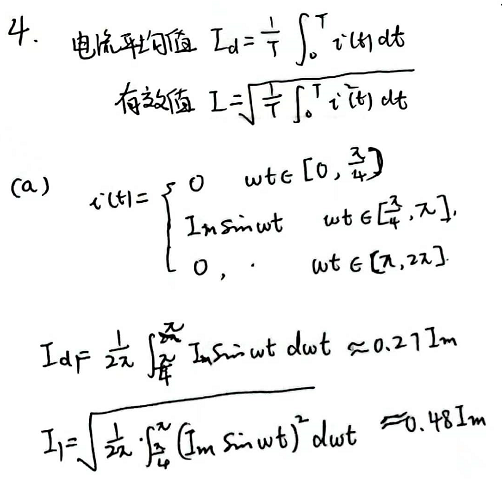 4. 电流平均值 I_d = \frac{1}{T} \int_0^T i(t) dt
有效值 I = \sqrt{\frac{1}{T} \int_0^T i^2(t) dt}
(a) i(t) = { 0 wt ∈ [0, \frac{π}{4})
I_m sin wt wt ∈ [\frac{π}{4}, π],
0, . wt ∈ [π, 2π].
I_{d1} = \frac{1}{2π} \int_{\frac{π}{4}}^{π} I_m sin wt dwt ≈ 0.27 I_m
I_1 = \sqrt{\frac{1}{2π} · \int_{\frac{π}{4}}^{π} (I_m sin wt)^2 dwt} ≈ 0.48 I_m